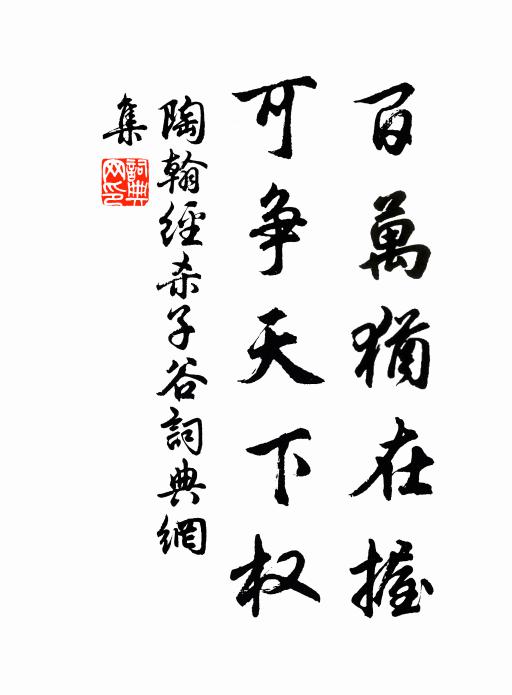 百萬猶在握
可争天下权
陶翰經杀子谷詞典網
集
詞典
网印